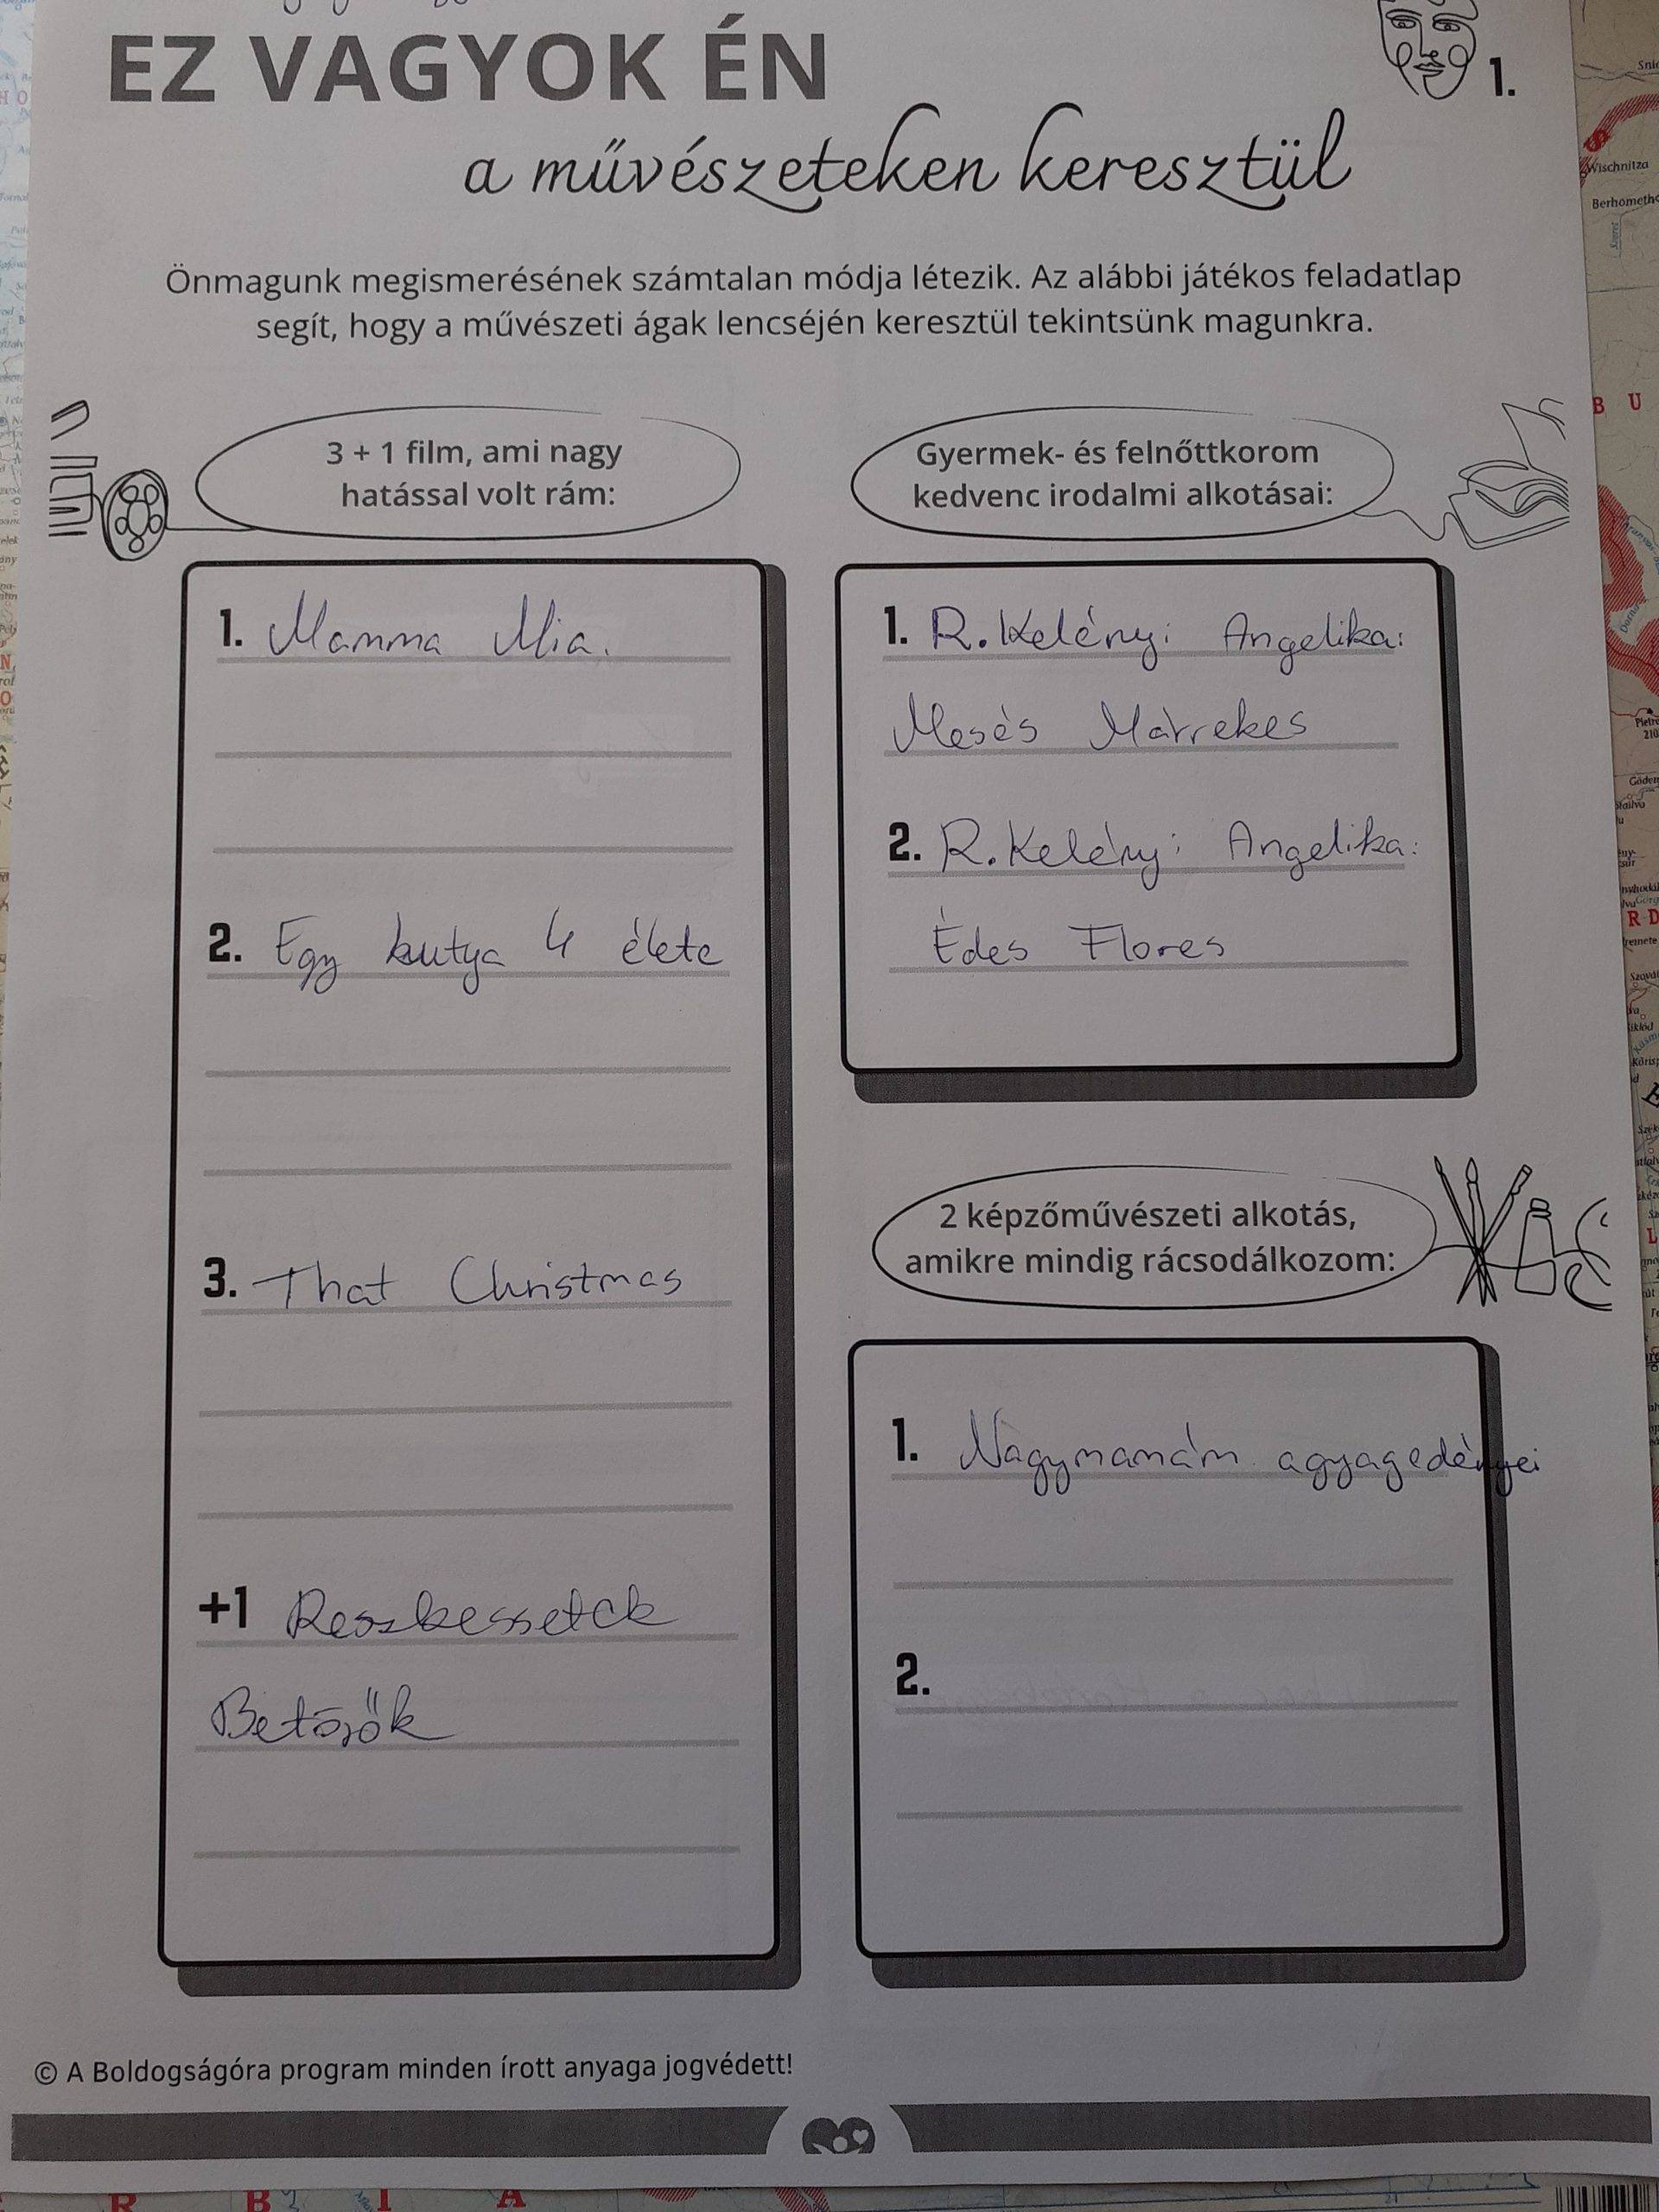 EZ VAGYOK ÉN
1.
a művészeteken keresztül
Önmagunk megismerésének számtalan módja létezik. Az alábbi játékos feladatlap
segít, hogy a művészeti ágak lencséjén keresztül tekintsünk magunkra.
3 + 1 film, ami nagy
hatással volt rám:
1. Mamma Mia.
2. Egy kutya 4 élete
3. That Christmas
+1 Reszkessetek
Betörők
Gyermek- és felnőttkorom
kedvenc irodalmi alkotásai:
1. R. Kelényi Angelika:
Mesés Marrekes
2. R. Kelényi Angelika:
Édes Flores
2 képzőművészeti alkotás,
amikre mindig rácsodálkozom:
1. Nagymamám agyagedényei
2.
© A Boldogságóra program minden írott anyaga jogvédett!
Wischnitza
B U
R D
R B I A